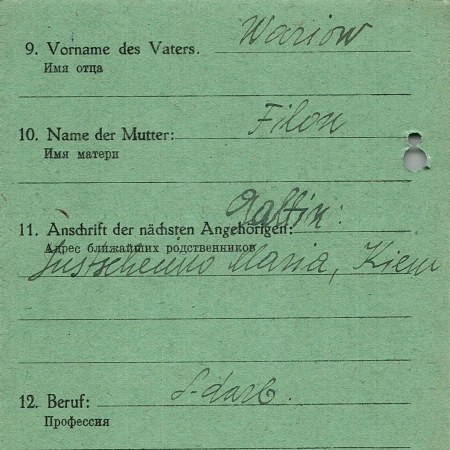 9. Vorname des Vaters. Wariow
Имя отца
10. Name der Mutter: Filon
Имя матери
Gattin:
11. Anschrift der nächsten Angehörigen:
Адрес ближайших родственников
Maria, Kiew
12. Beruf:
Профессия